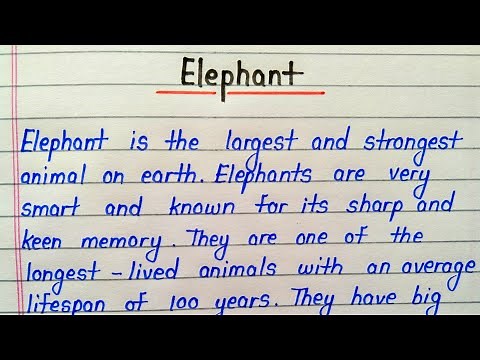 Elephant
Elephant is the largest and strongest
animal on earth. Elephants are very
smart and known for its sharp and
keen memory. They are one of the
longest-lived animals with an average
lifespan of 100 years. They have big